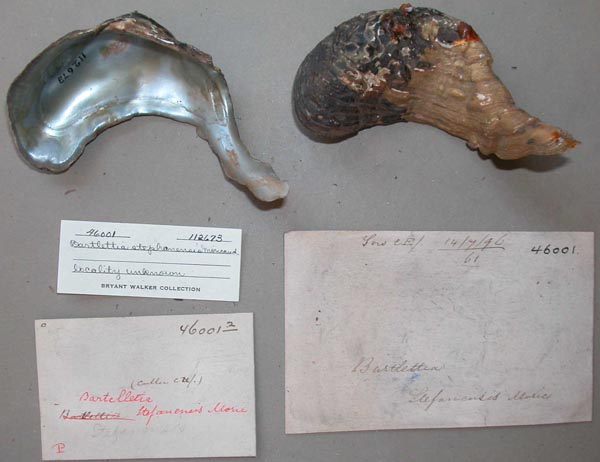 112673
46001 112673
Bartlettia stephanensis Moricand
locality unknown
BRYANT WALKER COLLECTION
46001 2
(Cutler c.
Bartelletia
Bartlettia Stefanensis Moric
Stefanensis
P
Sow 14/7/96
61
46001
Bartlettia
Stefanensis Moric